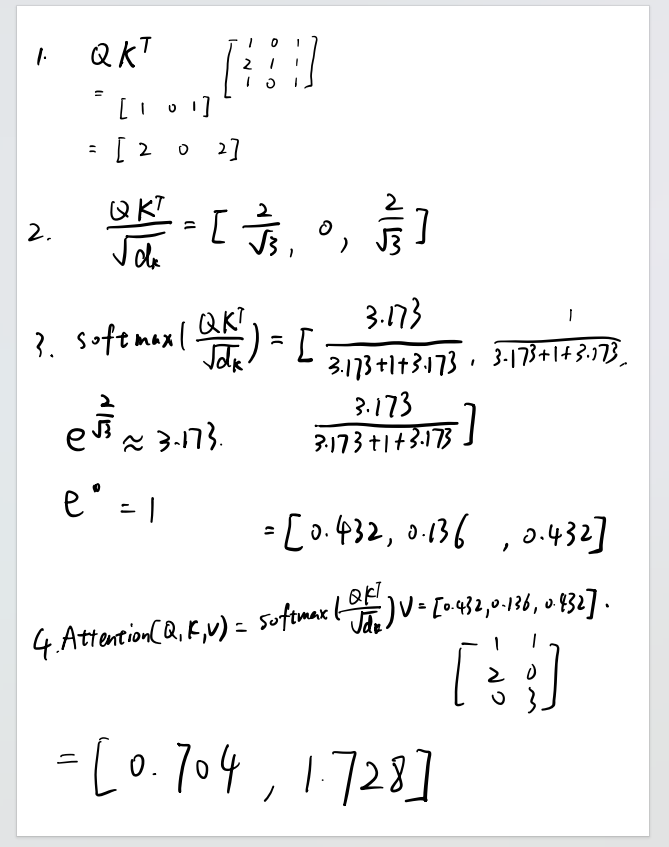 1. QK^T
= [1 0 1] [1 0 1; 2 1 1; 1 0 1]
= [2 0 2]
2. QK^T/√dk = [2/√3, 0, 2/√3]
3. softmax(QK^T/√dk) = [3.173/(3.173+1+3.173), 1/(3.173+1+3.173),
3.173/(3.173+1+3.173)]
e^(2/√3) ≈ 3.173.
e^0 = 1
= [0.432, 0.136, 0.432]
4. Attention(Q, K, V) = softmax(QK^T/√dk)V = [0.432, 0.136, 0.432].
[1 1; 2 0; 0 3]
= [0.704, 1.728]